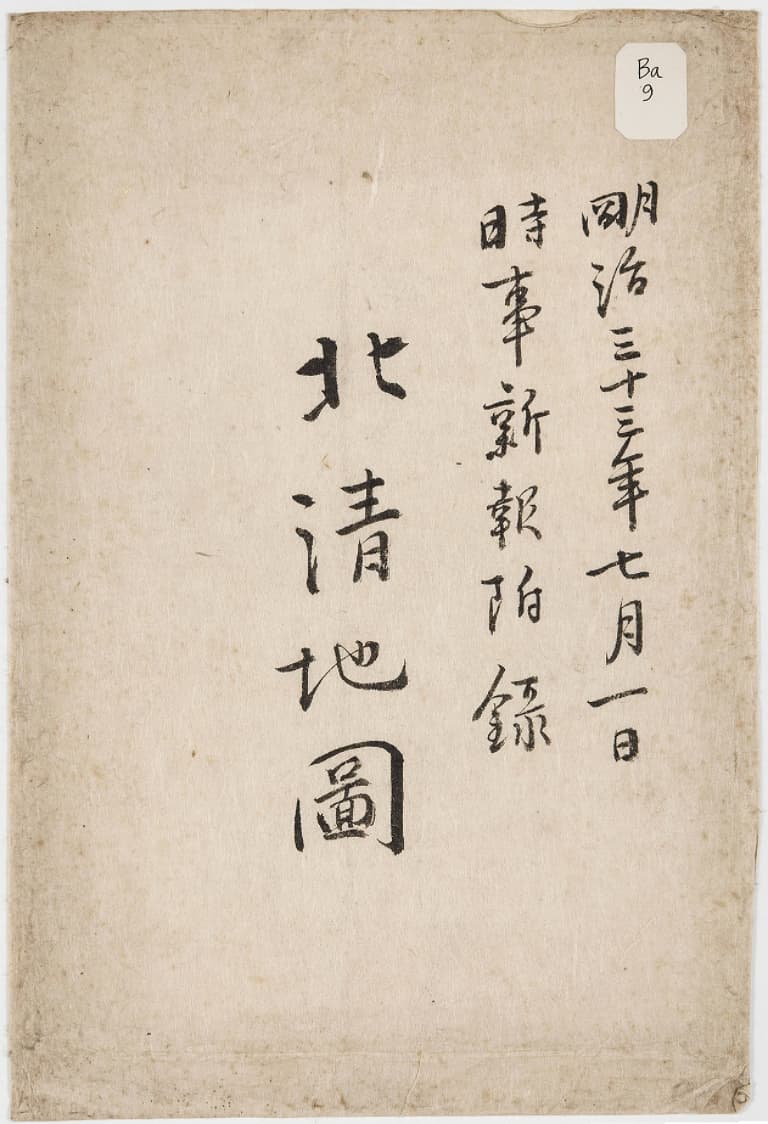 Ba
9
明治三十三年七月一日
時事新報附録
北清地圖